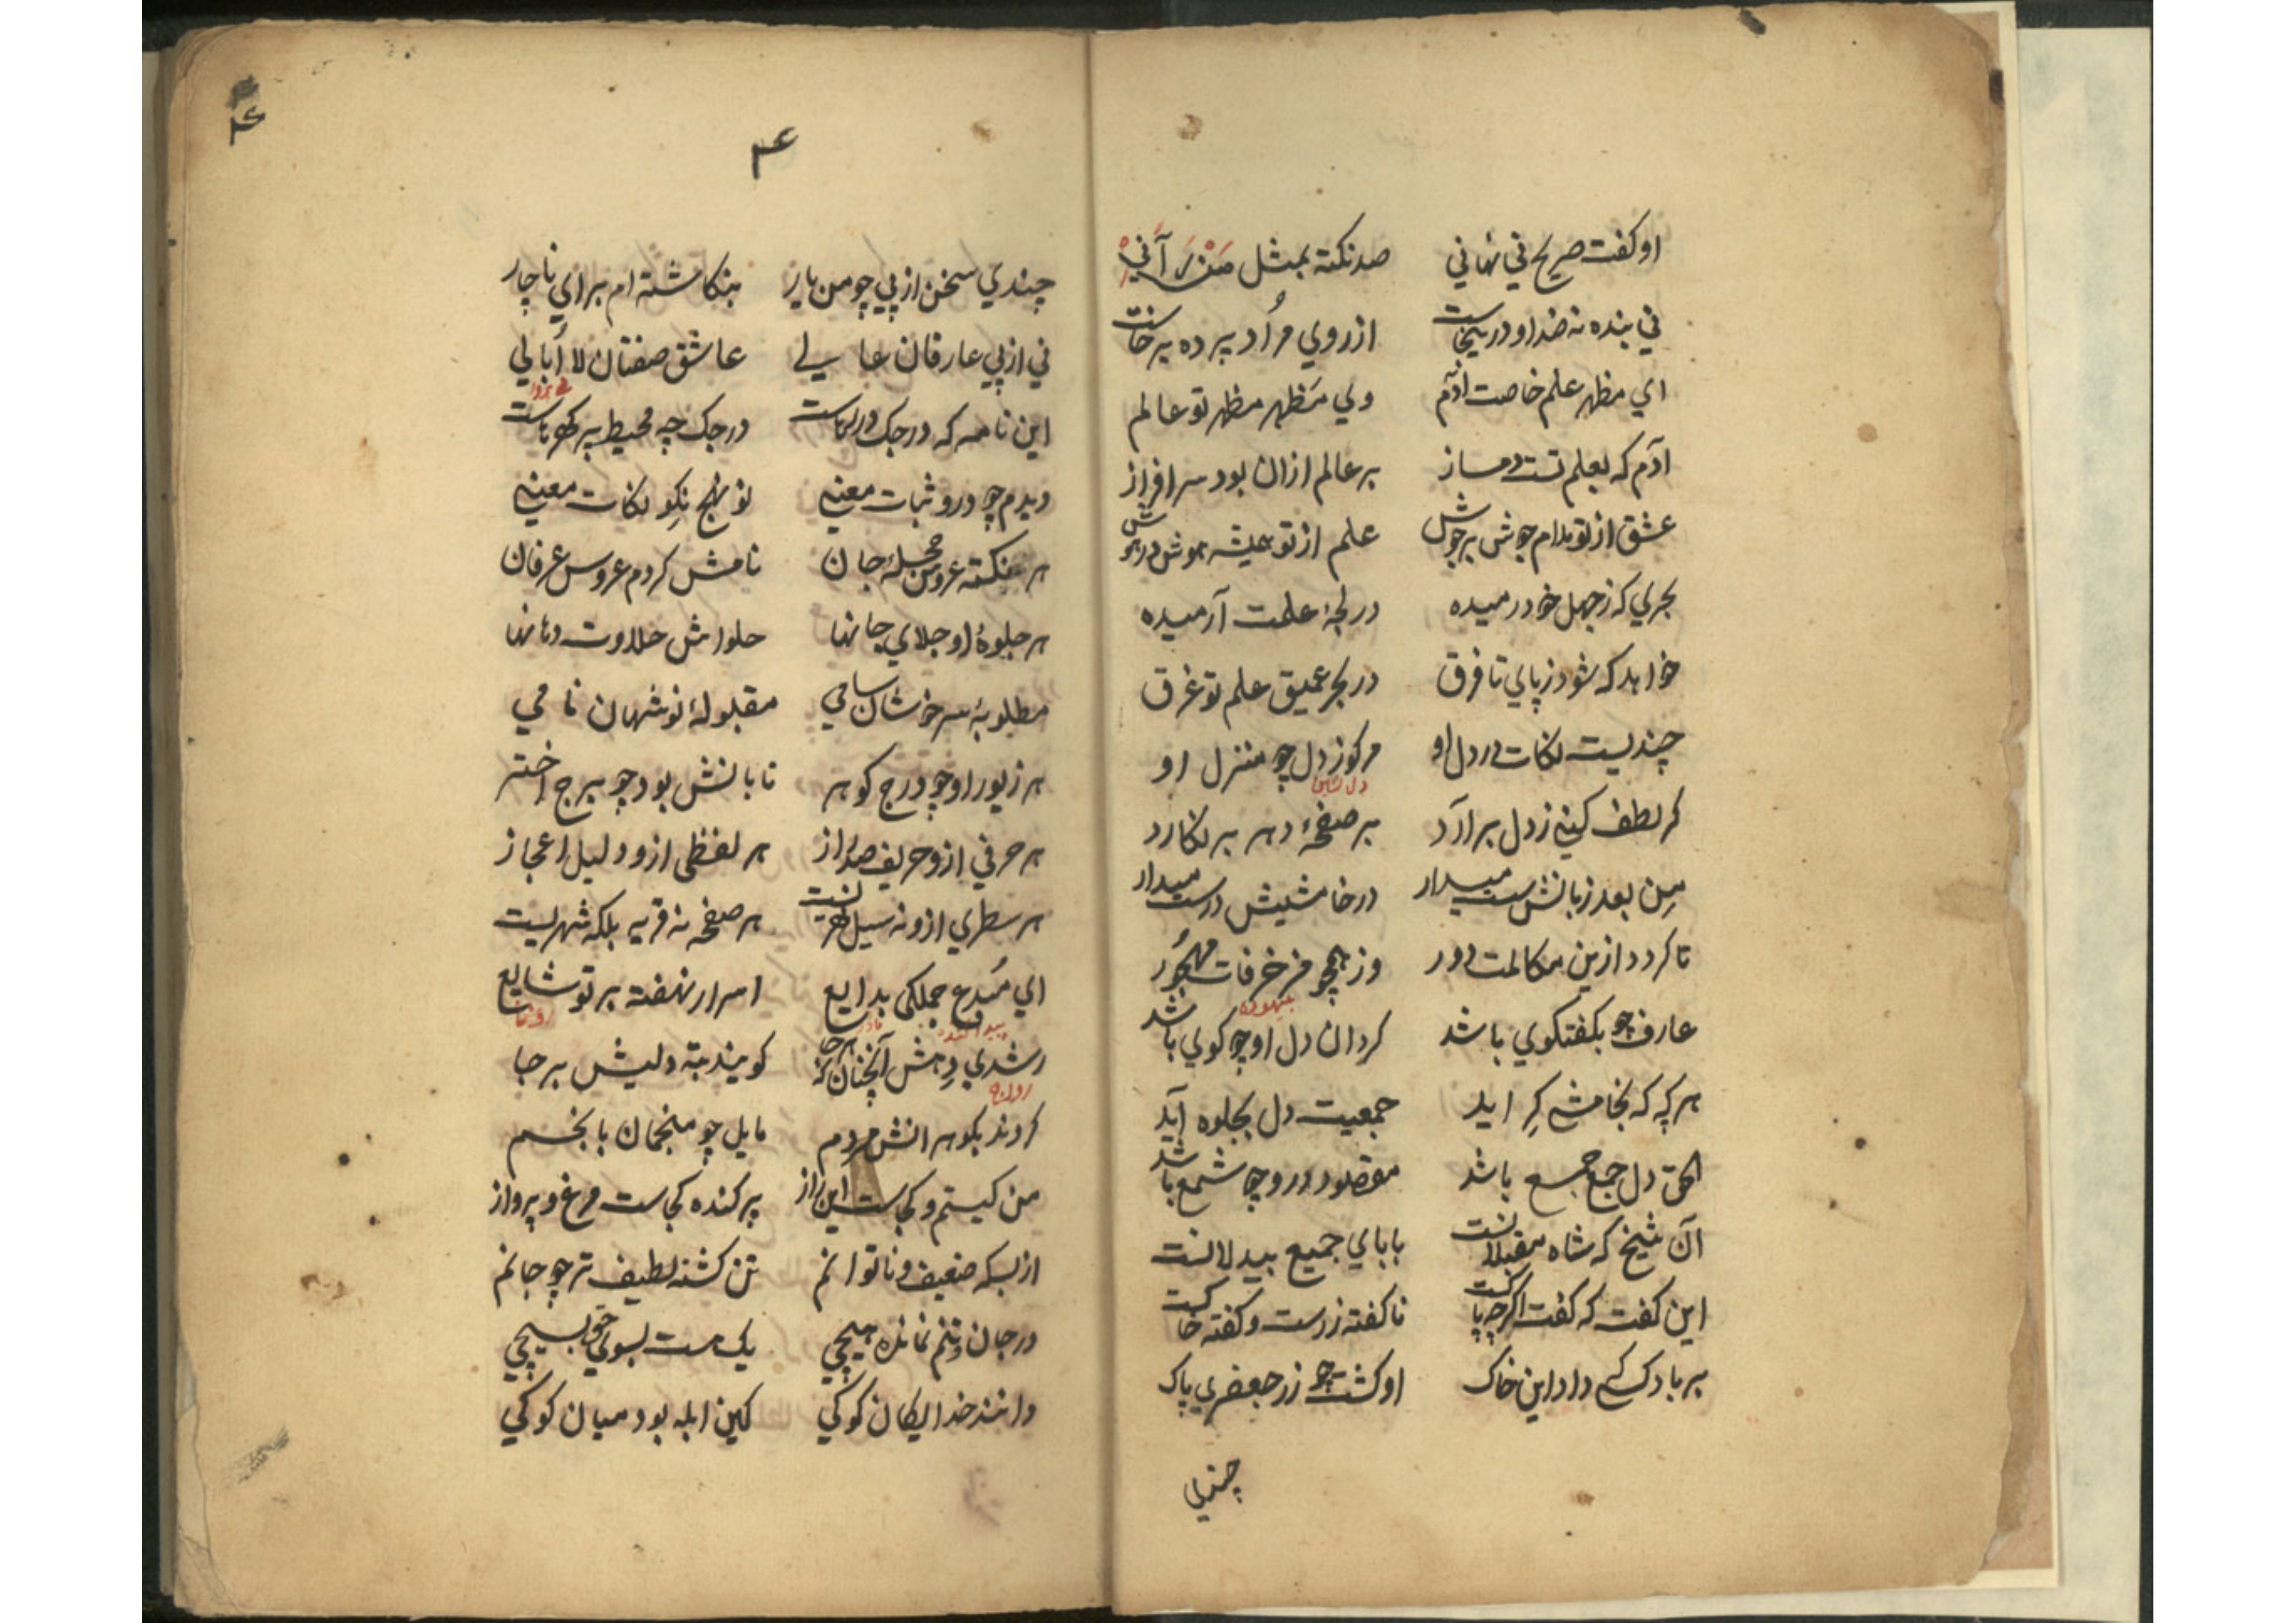 او کفت صریح نی نهانی صد نکته بمثل مَنْ رَآنِیْ
نی بنده نه خدا و در یخاست از روی مُراد پرده برخاست
ای مظهر علم خاصت آدم وی مَظهر مظهر تو عالم
آدم که بعلم تست دمساز بر عالم ازان بود سرافراز
عشق از تو مدام جوش برجوش علم از تو همیشه هوش در هوش
بحری که زجهل خود رمیده در لجۀ علمت آرمیده
خواهد که شود زپای تا فرق در بحر عمیق علم تو غرق
چندیست نکات در دل او مرکوز دل چو منزل او
کر لطف کنی زدل برآرد بر صفحۀ دهر بر نکارد
مِن بعد زبانش بست میدار در خامشیش درست میدار
تا کردد ازین مکالمت دور وز همچو مزخرفات مهجُور
بیهوده
عارف چو بکفتکوی باشد کردان دل او چو کوی باشد
هر که که بخامشی کِراید جمعیت دل بجلوه آید
الحق دل جمع جمع باشد مقصود درو چو شمع باشد
آن شیخ که شاه مقبلانست بابای جمیع بیدلانست
این کفت که کفت اکرچه پاکست ناکفته زرست و کفته خاکست
بر باد کسی داد این خاک او کشت چو زر جعفری پاک
چندی
۴
۴
چندی سخن از پی چو من یار بنکاشته ام برای ناچار
نی از پی عارفان عالی عاشق صفتان لااُبالی
این نامه که درجک درهاست درجک چه محیط پر کهرهاست
دیدم چو درو ثبات معنی نو نهج نکو نکات معنی
هر نکته عروس حجلۀ جان نامش کردم عروس عرفان
هر جلوۀ او جلای جانها حلواش حلاوت دهانها
مطلوبۀ سرخوشان سامی مقبولۀ نوشهان نامی
هر زیور او چو درج کوهر تابانش بود چو برج اختر
هر حرفی ازو حریف صد راز هر لفظی ازو دلیل اعجاز
هر سطری ازو نه سیل نهریست هر صفحه نه قریه بلکه شهریست
ای مُبدع جملکی بدایع اسرار نهفته بر تو شایع
رشدی دِهش آنچنان که هر جا کویند بته دلیش برجا
کردند بکوهرانش مردم مایل چو منجمان بانجم
من کیستم و کجاست این راز پر کنده کجاست مرغ و پرواز
از بسکه ضعیف و ناتوانم تن کشته لطیف تر چو جانم
در جان و تنم نمانده هیچی یک هست بسوی خو بسیچی
دانند خدایکان کوکی کین ابله بود میان کوکی